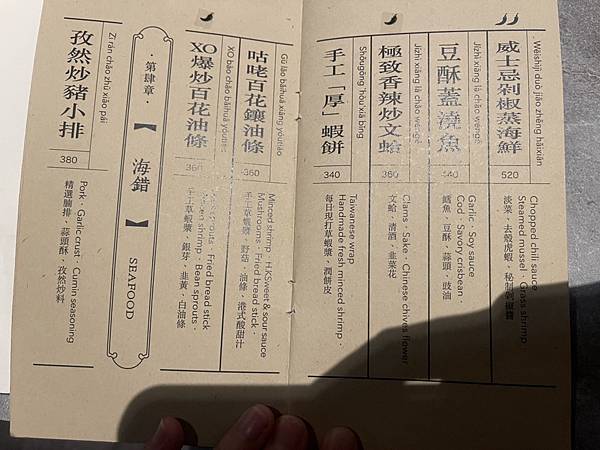 Wēishìjì duò jiāo zhēng hǎixiān
威士忌剁椒蒸海鮮
520
Chopped chili sauce
Steamed mussel · Grass shrimp
淡菜、去殼虎蝦、秘制剁椒醬
豆酥蓋澆魚
440
Garlic · Soy sauce
Cod · Savory crisbean
鱈魚、豆酥、蒜頭、豉油
Jízhì xiāng là chǎo wéngé
極致香辣炒文蛤
360
Clams · Sake · Chinese chives flower
文蛤、清酒、韭菜花
Shǒugōng 'hòu' xiā bǐng
手工「厚」蝦餅
340
Taiwanese wrap
Handmade fresh minced shrimp ·
每日現打草蝦漿、潤餅皮
Gū lǎo bǎihuā xiāng yóutiáo
咕咾百花鑲油條
360
Minced shrimp · HK Sweet & sour sauce
Mushrooms · Fried bread stick ·
手工草蝦漿、野菇、油條、港式酸甜汁
XO bào chǎo bǎihuā yóutiáo
XO爆炒百花油條
360
sprouts · Fried bread stick
shrimp · Bean sprouts ·
手工草蝦漿、銀芽、韭黃、白油條
·第肆章·
【海錯】
SEAFOOD
Zī rán chǎo zhū xiǎo pái
孜然炒豬小排
380
Pork · Garlic crust · Cumin seasoning
精選腩排、蒜頭酥、孜然炒料